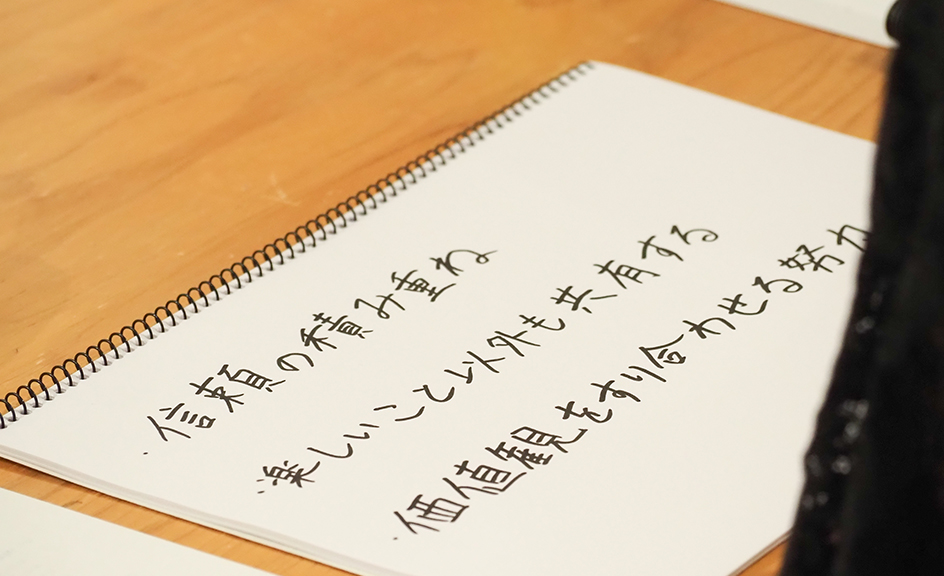 ・信頼の積み重ね
・楽しいこと以外も共有する
・価値観をすり合わせる努力